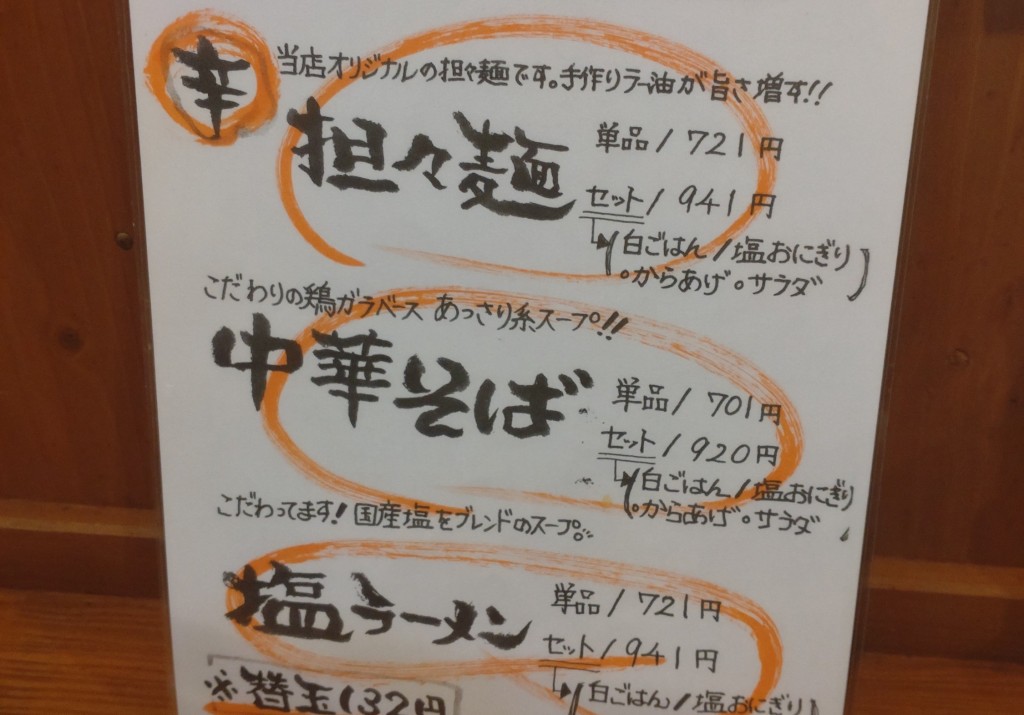 辛
当店オリジナルの担々麺です。手作りラー油が旨さ増す!!
担々麺
単品/721円
セット/941円
(白ごはん/塩おにぎり
。からあげ。サラダ)
こだわりの鶏ガラベース あっさり系スープ!!
中華そば
単品/701円
セット/920円
(白ごはん/塩おにぎり
。からあげ。サラダ
こだわってます!国産塩をブレンドのスープ。
塩ラーメン
単品/721円
セット/941円
白ごはん/塩おにぎり
※替玉132円